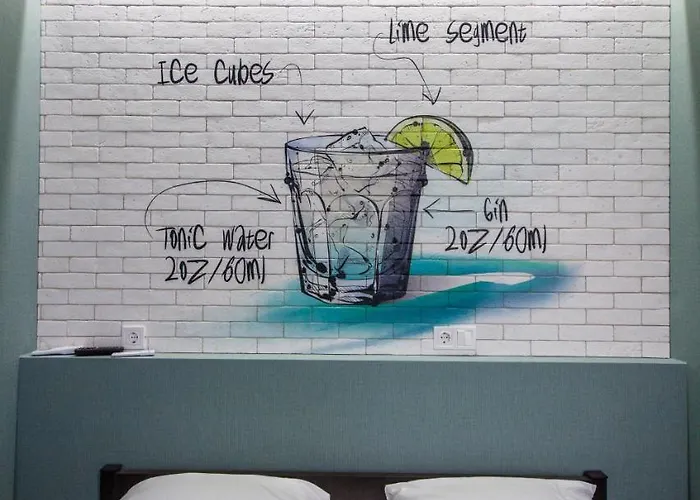 Lime segment
Ice Cubes
Gin
2oz/60ml
Tonic water
2oz/60ml